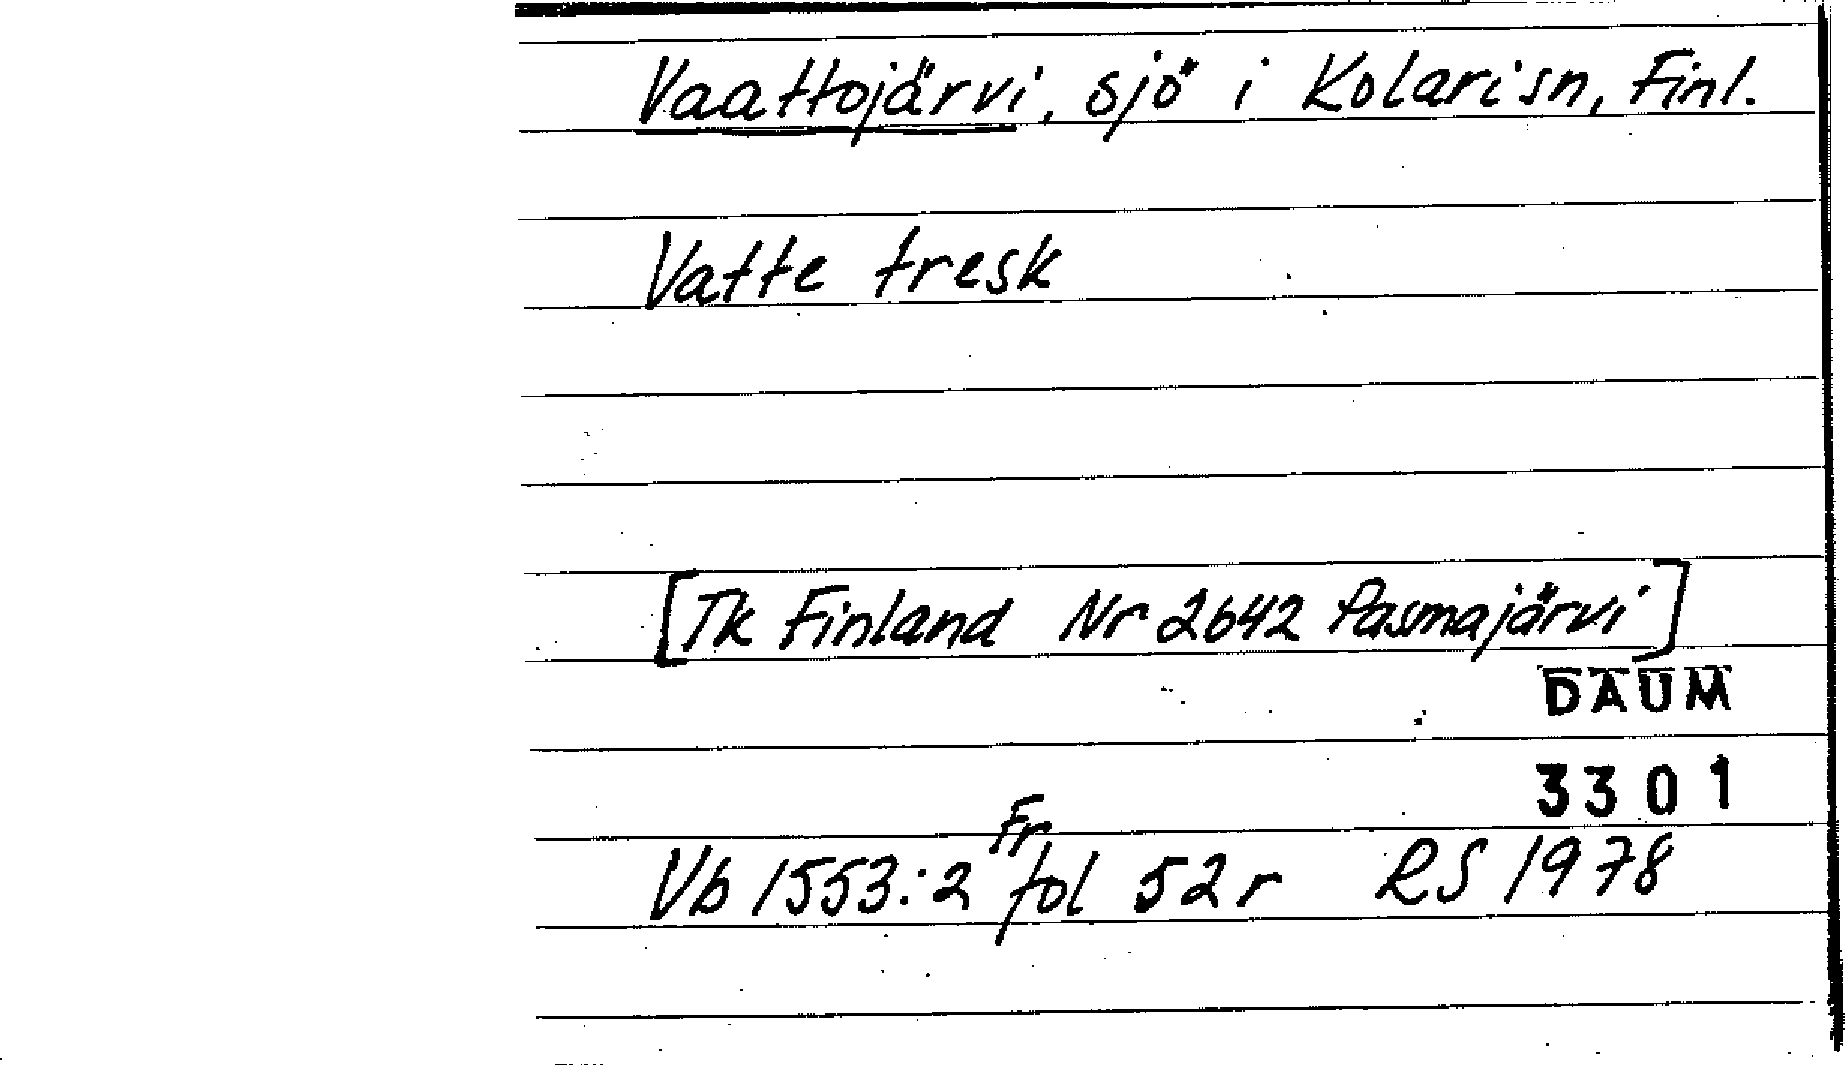 Vaattojärvi, sjö i Kolari sn, Finl.
Vatte tresk
[Tk Finland Nr 2642 Pasmajärvi]
DAUM
3301
Vb 1553:2 Fr fol 52r RS 1978